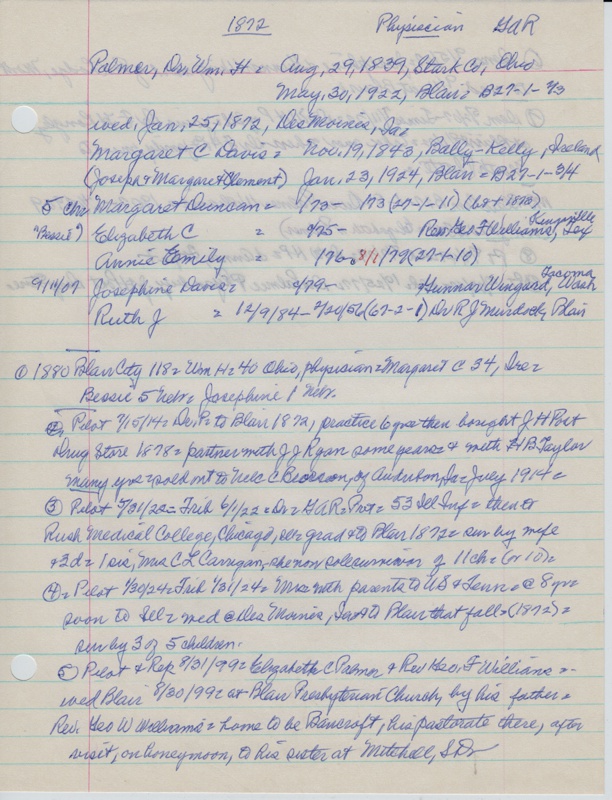 1872 Physician GAR
Palmer, Dr. Wm. H = Aug, 29, 1839, Stark Co, Ohio
May, 30, 1922, Blair = B27-1-
wed, Jan, 25, 1872, Des Moines, Ia,
Margaret C Davis = Nov. 19, 1843, Bally-Kelly, Ireland
(Joseph + Margaret Clement) Jan. 23, 1924, Blair = B27-1-3/4
5 chi Margaret Duncan = 1/73 - 1/73 (27-1-11)
"Bessie") Elizabeth C = 1/75- Rev Geo F Williams,
Annie Emily = 1/76- 1/79 (27-1-10) Tacoma
9/14/07 Josephine Davis = 1/79- Gunnar Wingard, Wash
Ruth J = 12/9/84 - 2/20/56 (67-2-1) Dr R J Murdock, Blair
① 1880 Blair City 118 = Wm H = 40 Ohio, physician = Margaret C 34, Ire =
Bessie 5 Nebr. = Josephine 1 Nebr.
② Pilot 7/15/14 = Dr. P = to Blair 1872, practice 6 yrs then bought J H Post
Drug Store 1878 = partner with J J Ryan some years = + with H B Taylor
many yrs = sold out to Nels C of Audubon, Ia = July 1914 =
③ Pilot 5/31/22 = Trib 6/1/22 = Dr = GAR = Pvt = 53 Ill Inf = then to
Rush Medical College, Chicago, Ill = grad = to Blair 1872 = sur by wife
+ 3d = 1 sis, Mrs C L Carrigan, she now sole survivor of 11 ch = (or 10) =
④ = Pilot 1/30/24 = Trib 1/31/24 = Mrs = with parents to US + Tenn = @ 8 yrs
soon to Ill = wed @ Des Moines, Ia = to Blair that fall = (1872) =
sur by 3 of 5 children.
⑤ Pilot + Rep 8/31/99 = Elizabeth C Palmer + Rev Geo, F Williams =
wed Blair 8/30/99 = at Blair Presbyterian Church, by his father =
Rev. Geo W Williams = home to be Bancroft, his pastorate there, after
visit, on honeymoon, to his sister at Mitchell, S D